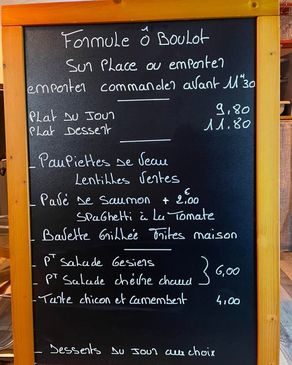 Formule Ô Boulot
Sur Place ou emporter
emporter commander avant 11H30
Plat Du Jour 9,80
Plat Dessert 11.80
- Paupiettes De Veau
Lentilles Vertes
- Pavé De Saumon + 2,00€
Spaghetti à La Tomate
- Bavette Grillée Frites maison
- PT Salade Gesiers
- PT Salade chèvre chaud } 6,00
- Tarte chicon et Camembert 4,00
- Desserts Du Jour au choix